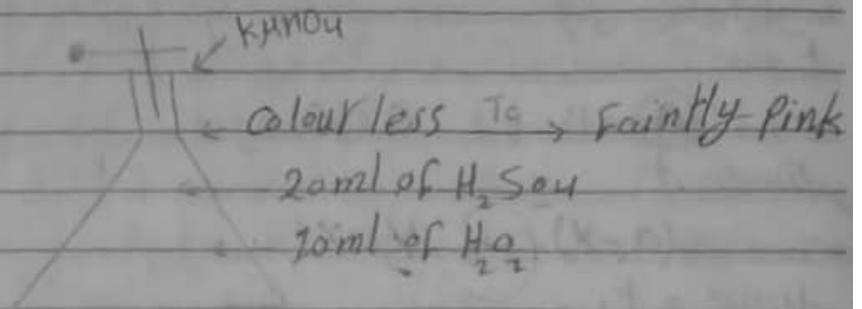 KMnO4
Colourless To Faintly Pink
20ml of H2SO4
10ml of H2O2